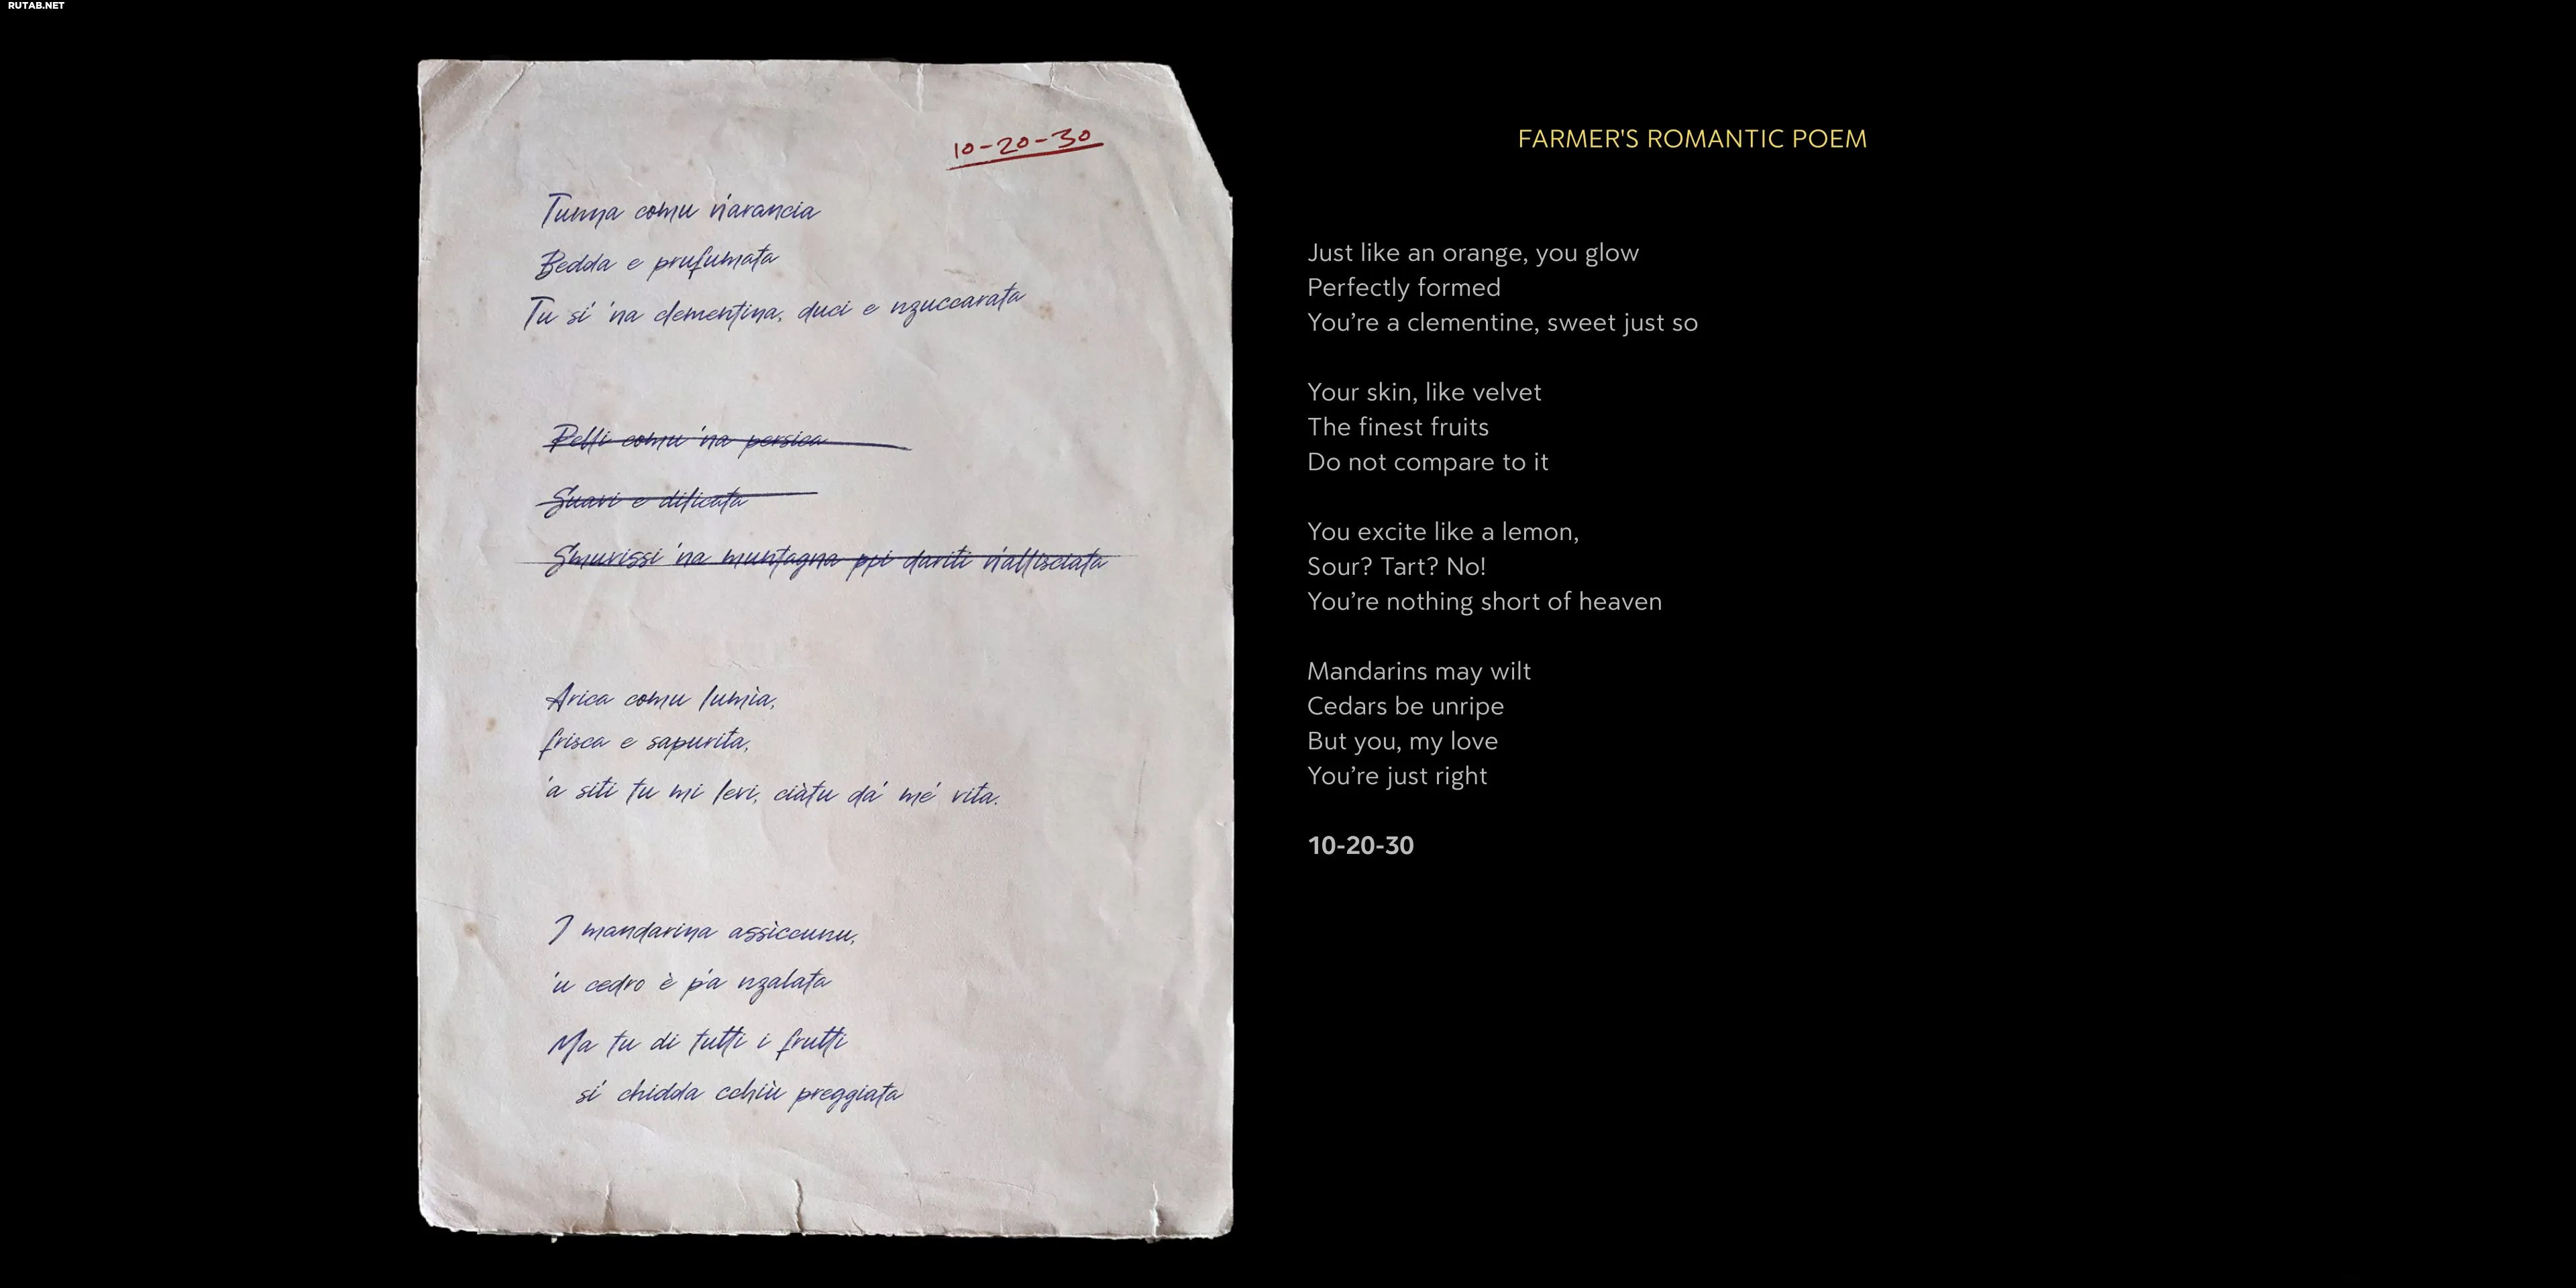 RUTAB.NET
10-20-30
Tunna comu n'arancia
Bedda e prufumata
Tu si' 'na clementina, duci e nzuccarata
Pelli comu 'na persica
Suavi e dilicata
Smurissi 'na muntagna ppi dariti n'allisciata
Arica comu lumìa,
frisca e sapurita,
'a siti tu mi levi, ciàtu dá' mé' vita.
I mandarina assìccunu,
'u cedro è p'a nzalata
Ma tu di tutti i frutti
si' chidda cchiù preggiata
FARMER'S ROMANTIC POEM
Just like an orange, you glow
Perfectly formed
You're a clementine, sweet just so
Your skin, like velvet
The finest fruits
Do not compare to it
You excite like a lemon,
Sour? Tart? No!
You're nothing short of heaven
Mandarins may wilt
Cedars be unripe
But you, my love
You're just right
10-20-30